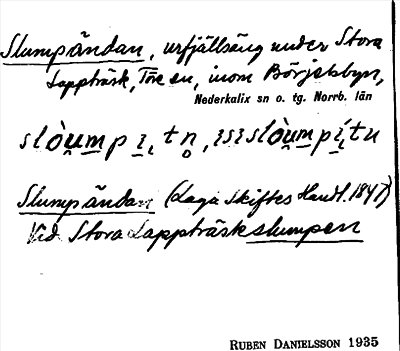 Slumpändan, urfjällsäng under Stora
Lappträsk, Töre sn, inom Börjelsbyn,
Nederkalix sn o. tg. Norrb. län
slòu̯m̲pi̲tn̥, ısı slòu̯m̲pı̲́tn
Slumpändan (Laga Skiftes Handl. 1847)
Vid Stora Lappträskslumpen
RUBEN DANIELSSON 1935